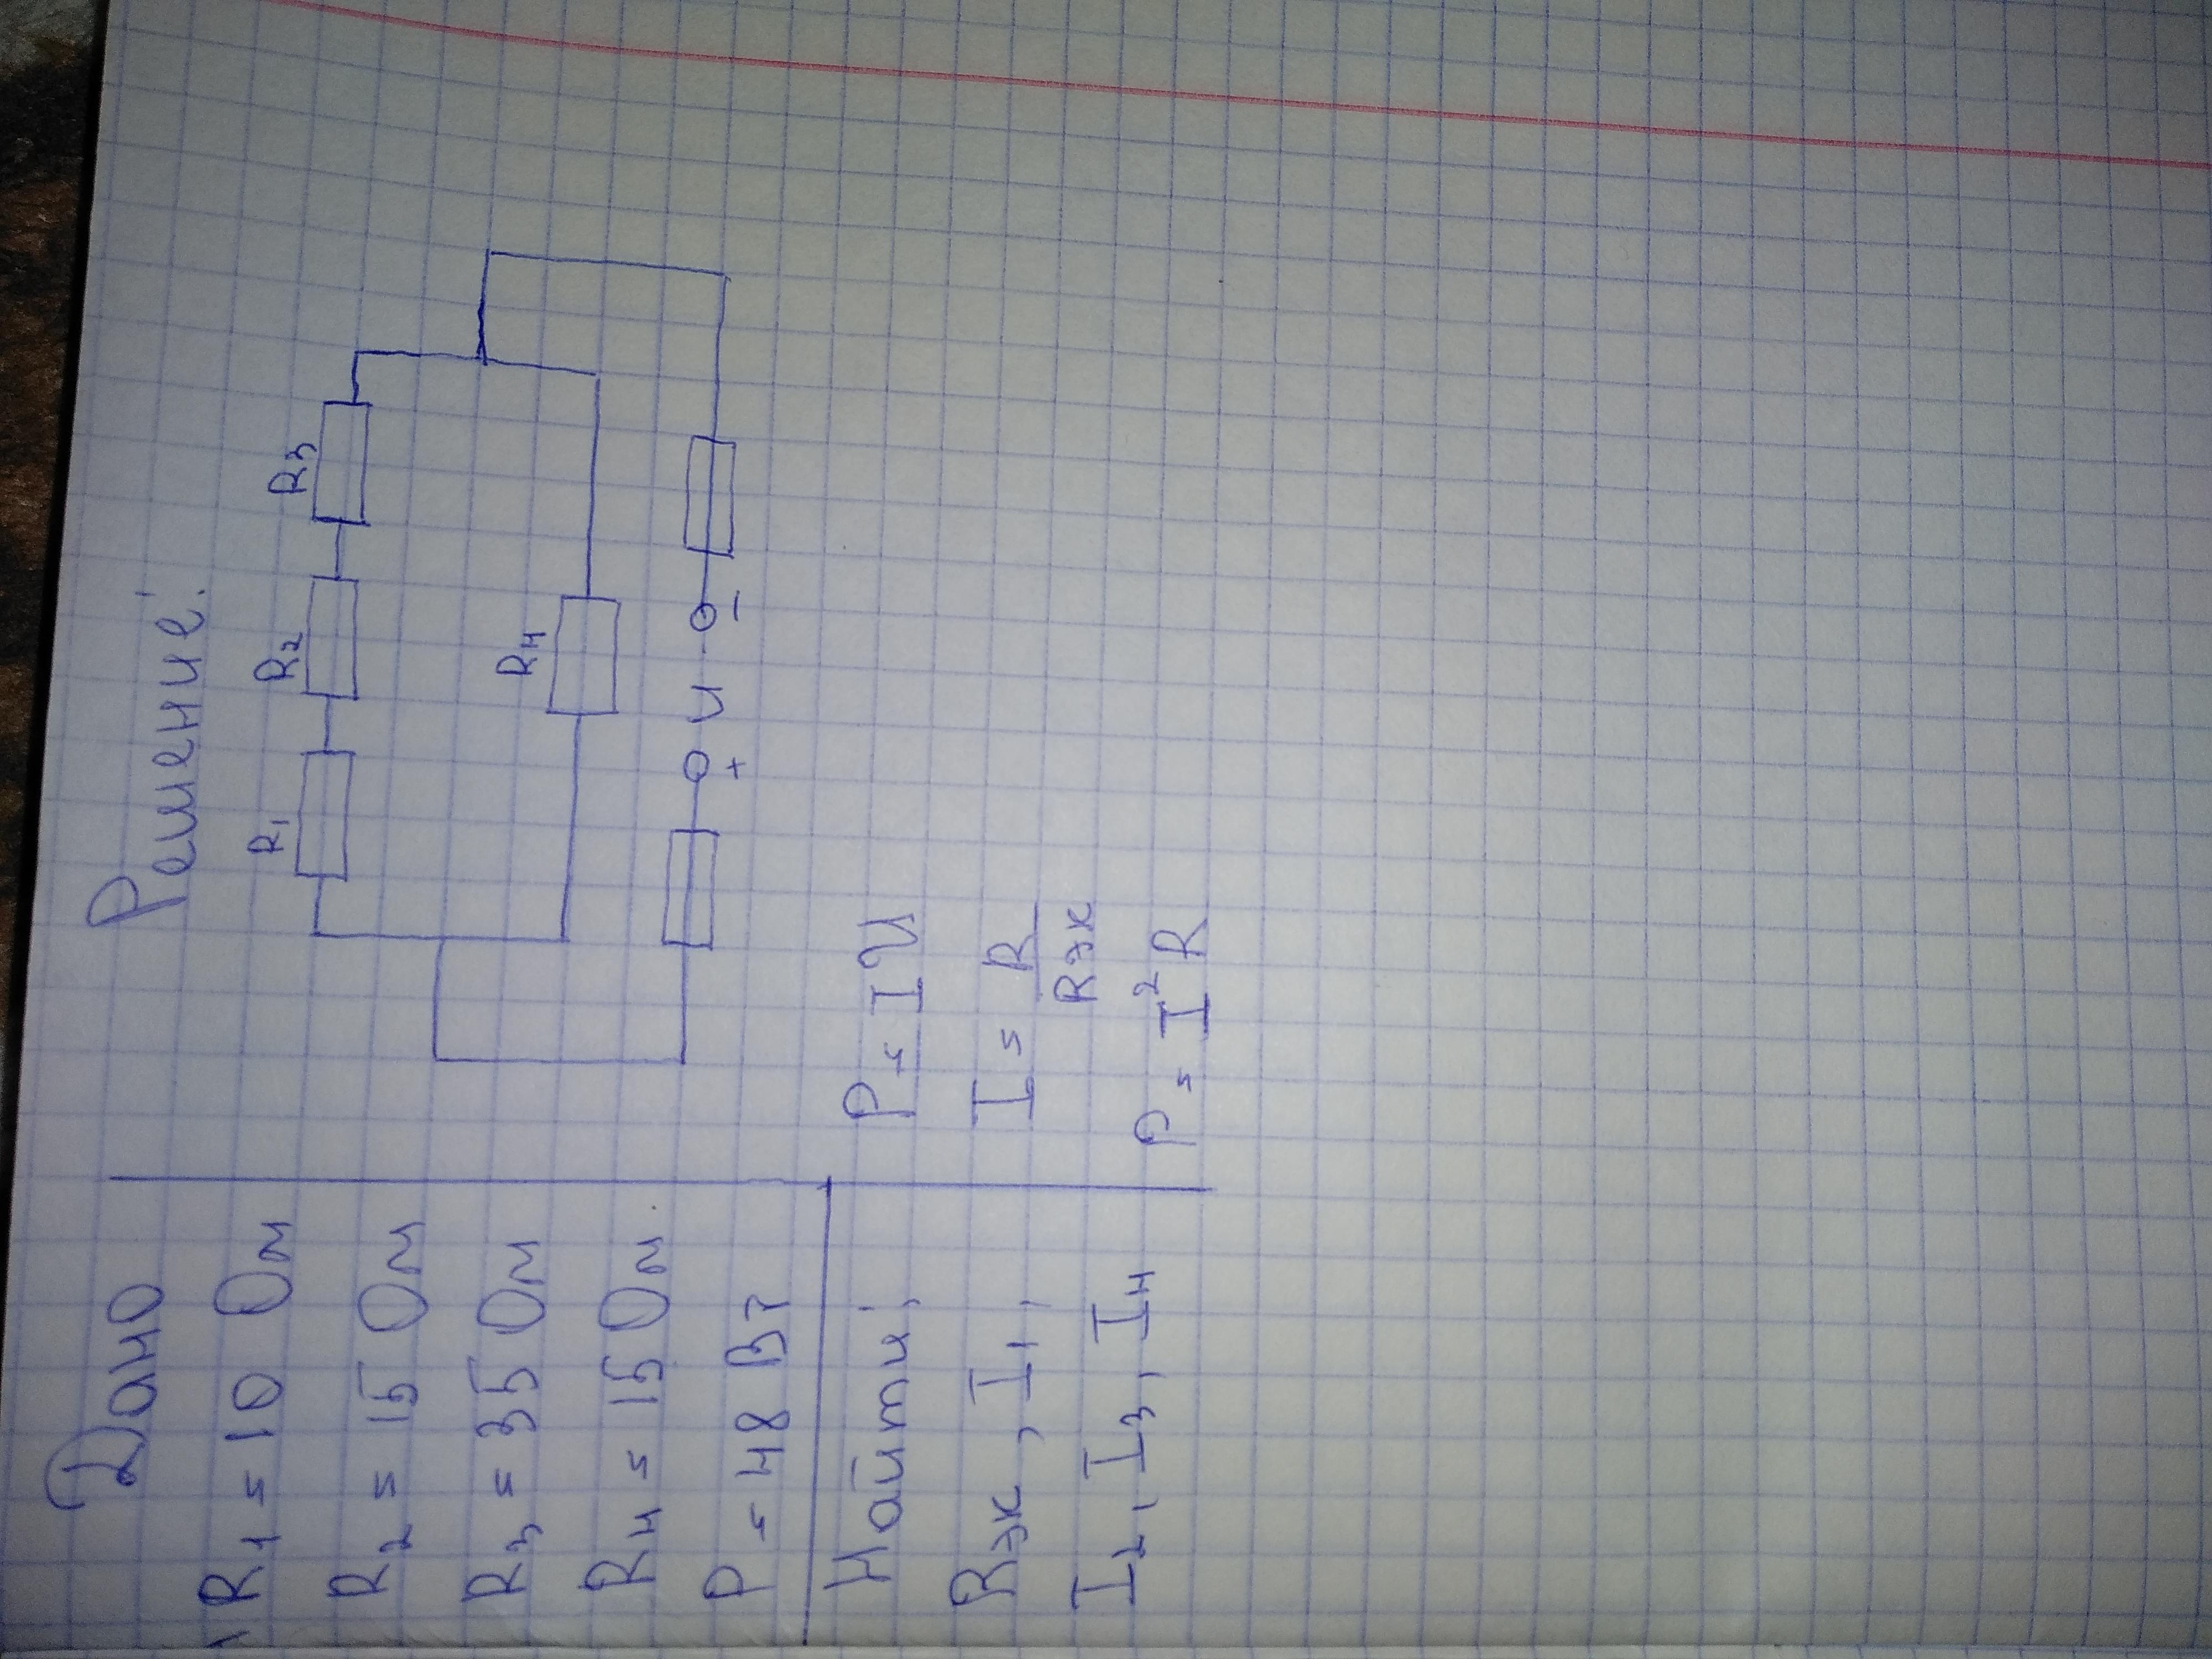 Дано
R1 = 10 Ом
R2 = 15 Ом
R3 = 35 Ом
R4 = 15 Ом
P = 48 Вт
Найти:
Rэк, I1,
I2, I3, I4
Решение:
R1 R2 R3
R4
+ U -
P = IU
I = R/Rэк
P = I²R